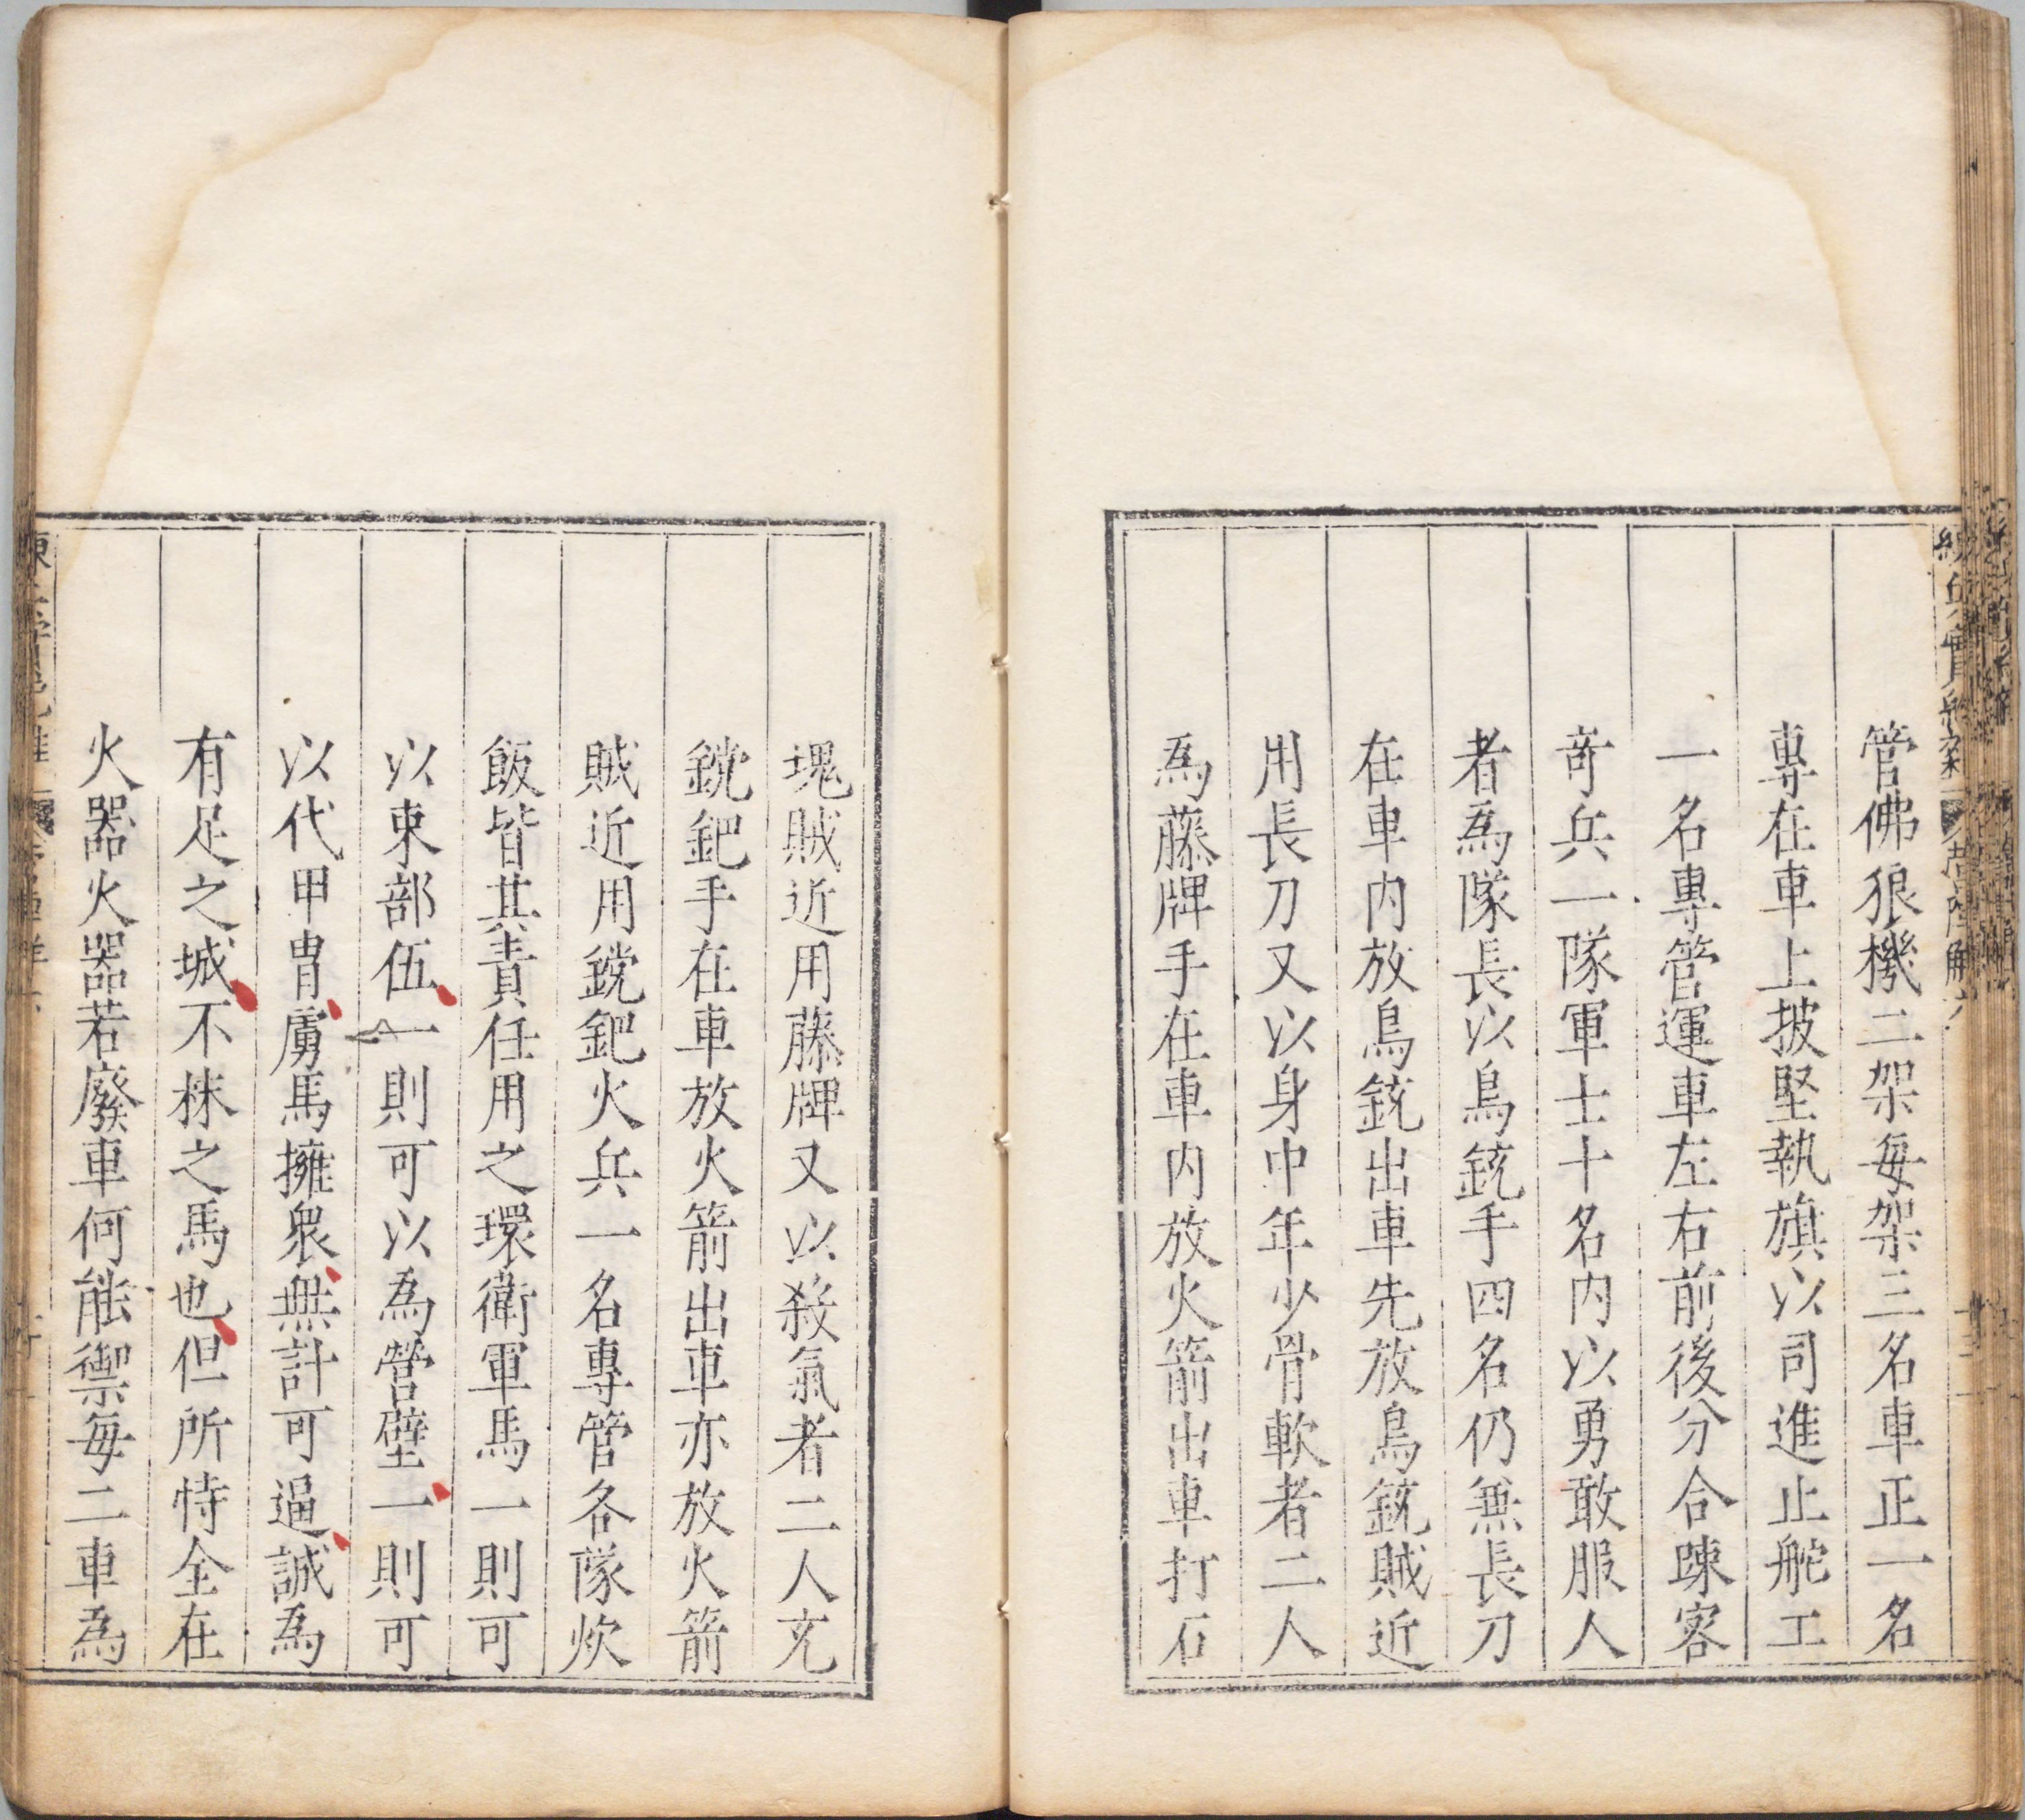 管佛狼機二架每架三名車正一名
專在車上披堅執旗以司進止舵工
一名專管運車左右前後分合踈客
竒兵一隊軍士十名内以勇敢服人
者爲隊長以鳥銃手四名仍兼長刀
在車内放鳥銃出車先放鳥銃賊近
用長刀又以身中年少骨軟者二人
爲藤牌手在車内放火箭出車打石
塊賊近用藤牌又以殺氣者二人充
鎲鈀手在車放火箭出車亦放火箭
賊近用鎲鈀火兵一名專管各隊炊
飯皆其責任用之環衛軍馬一則可
以束部伍一則可以為營壁一則可
以代甲胄虜馬擁衆無計可逼誠爲
有足之城不秣之馬也但所恃全在
火器火器若廢車何能禦每二車爲